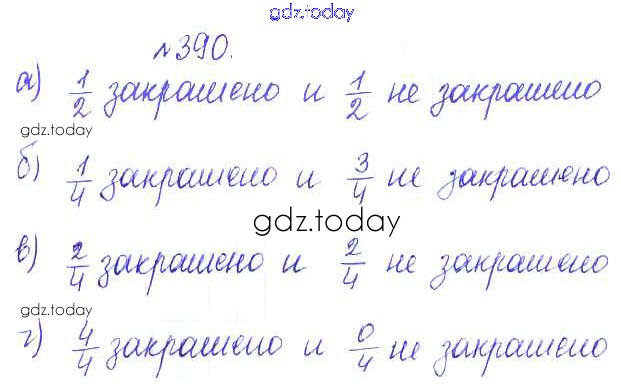 gdz.today
№390.
а) 1/2 закрашено и 1/2 не закрашено
gdz.today
б) 1/4 закрашено и 3/4 не закрашено
gdz.today
в) 2/4 закрашено и 2/4 не закрашено
gdz.today
г) 4/4 закрашено и 0/4 не закрашено